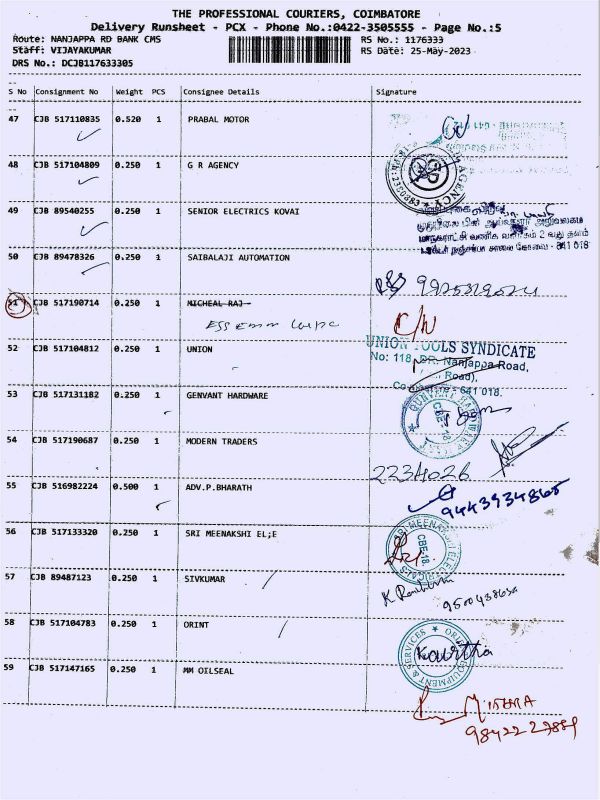 THE PROFESSIONAL COURIERS, COIMBATORE
Delivery Runsheet - PCX - Phone No.:0422-3505555 - Page No.:5
Route: NANJAPPA RD BANK CMS RS No.: 1176333
Staff: VIJAYAKUMAR RS Date: 25-May-2023
DRS No.: DCJB117633305
S No Consignment No Weight PCS Consignee Details Signature
47 CJB 517110835 0.520 1 PRABAL MOTOR
48 CJB 517104809 0.250 1 G R AGENCY
AGENCY
49 CJB 89540255 0.250 1 SENIOR ELECTRICS KOVAI
மாநகராட்சி வணிக வளாகம் 2 வது தளம்
சாலை கோவை - 641 018.
50 CJB 89478326 0.250 1 SAIBALAJI AUTOMATION
51 CJB 517190714 0.250 1 MICHEAL RAJ
C/W
52 CJB 517104812 0.250 1 UNION
UNION TOOLS SYNDICATE
No: 118, DR. Nanjappa Road,
Road),
Coimbatore - 641 018.
53 CJB 517131182 0.250 1 GENVANT HARDWARE
CBE-18
54 CJB 517190687 0.250 1 MODERN TRADERS
2234026
55 CJB 516982224 0.500 1 ADV.P.BHARATH
9443934865
56 CJB 517133320 0.250 1 SRI MEENAKSHI EL;E
SRI MEENAKSHI ELECTRICALS
CBE-18.
57 CJB 89487123 0.250 1 SIVKUMAR
58 CJB 517104783 0.250 1 ORINT
ORIENT EQUIPMENT & SERVICES
Kavitha
59 CJB 517147165 0.250 1 MM OILSEAL